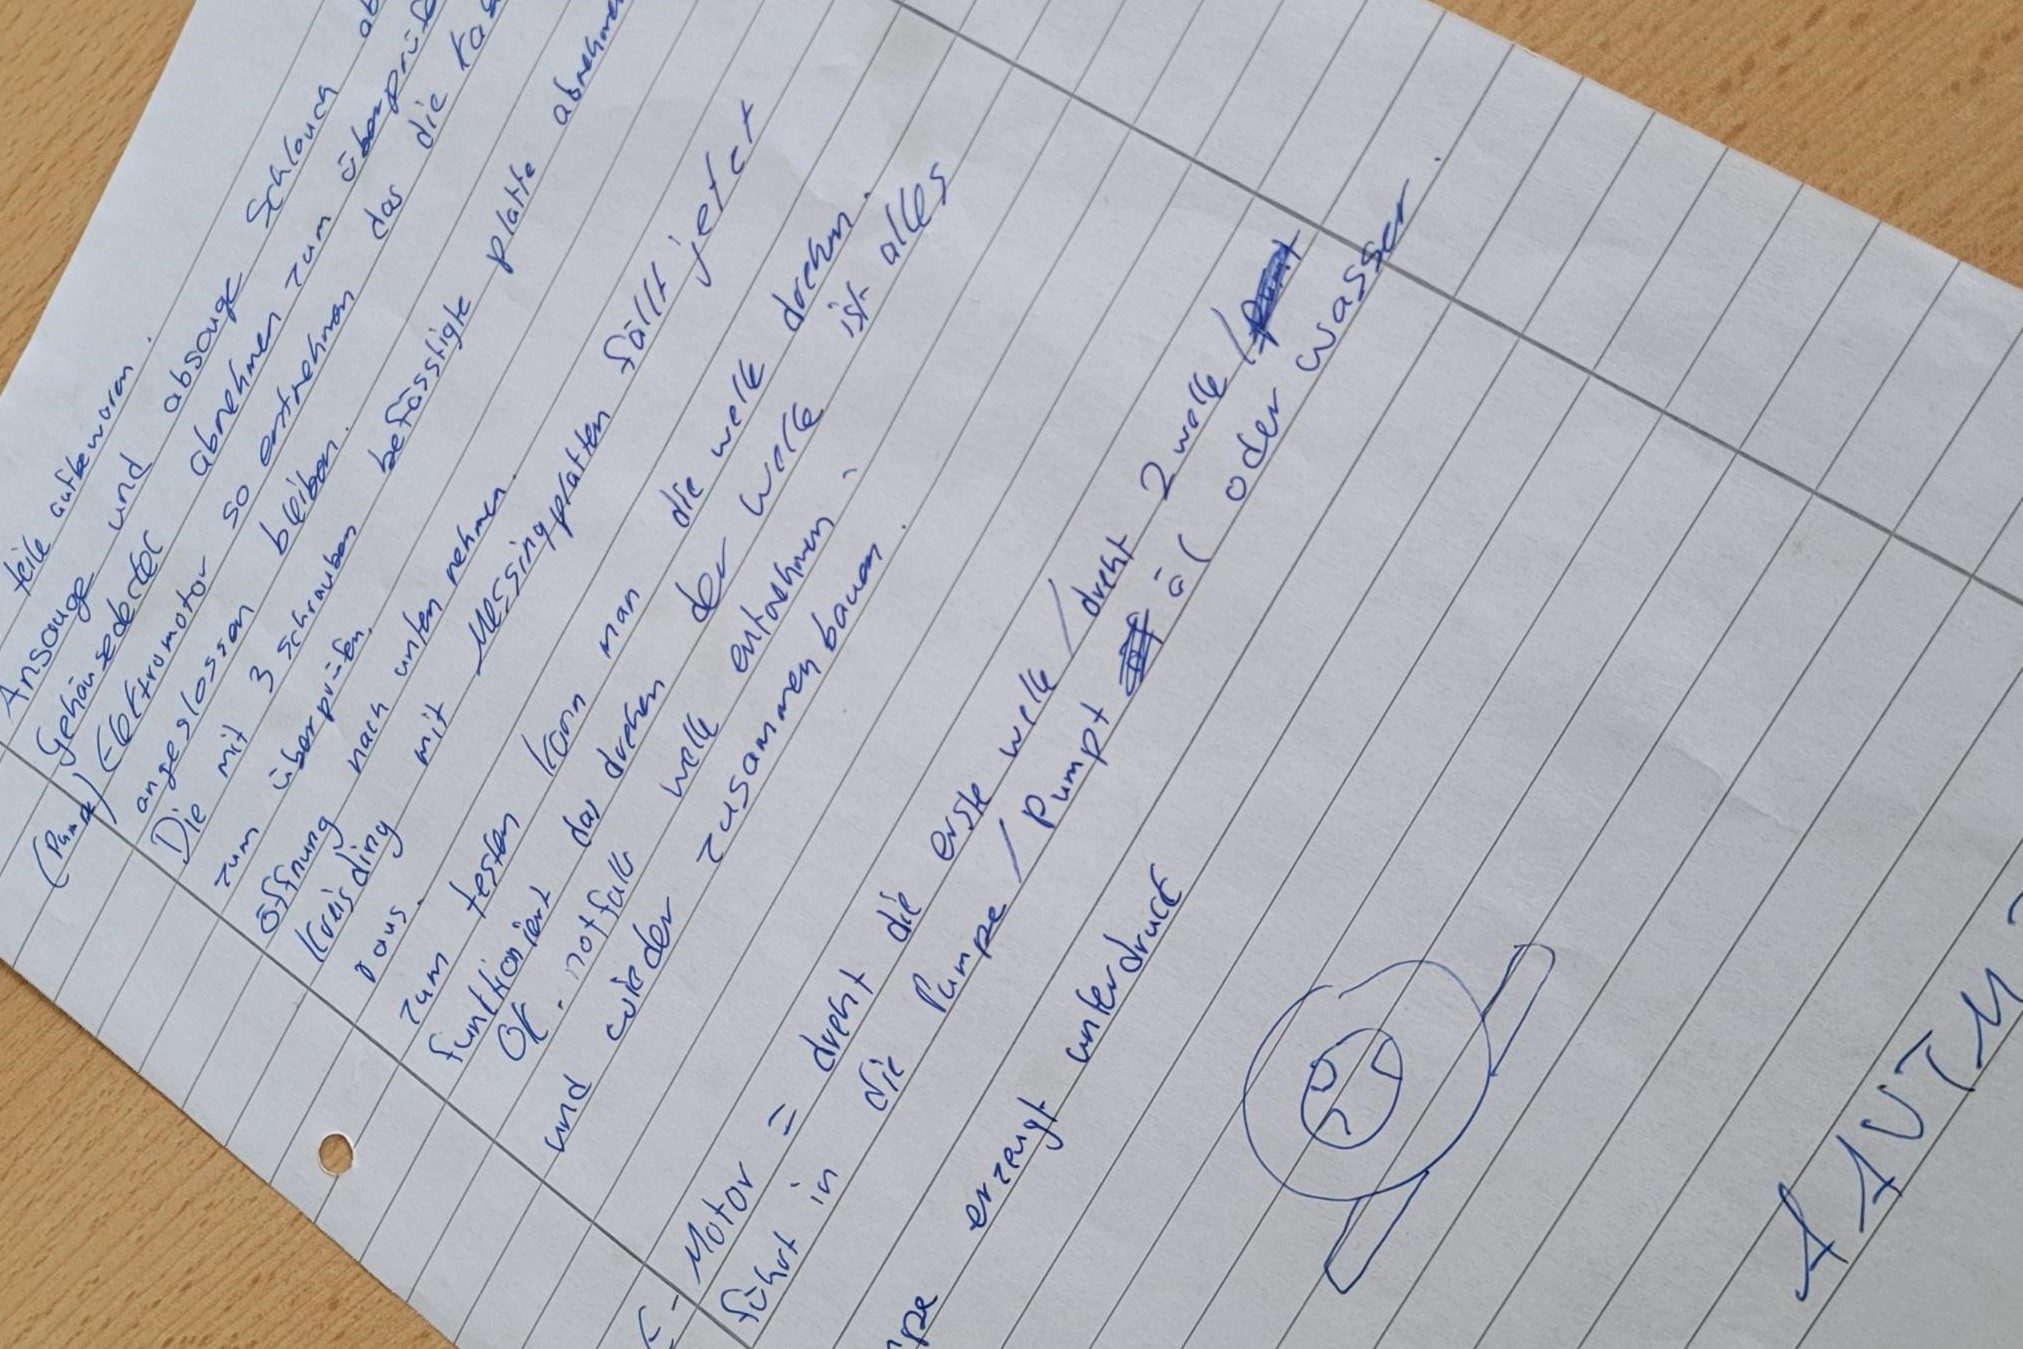 teile aufbewaren.
Ansauge und absauge Schlauch ab
Gehäusedeckel abnehmen zum überprüfe
(Pumpe) Elektromotor so entnehmen das die Ka
angeslossen bleiben.
Die mit 3 schrauben befässtigte platte abnehmen
zum überprüfen.
öffnung nach unten nehmen.
Kreisding mit Messingplatten fällt jetzt
raus.
zum testen kann man die welle drehen.
funktioniert das drehen der welle ist alles
OK. notfalls welle entnehmen,
und wieder zusammen bauen.
E-Motor = dreht die erste welle / dreht 2 welle /
führt in die Pumpe / Pumpt öl oder wasser.
mpe erzeugt unterdruck
AAUTM